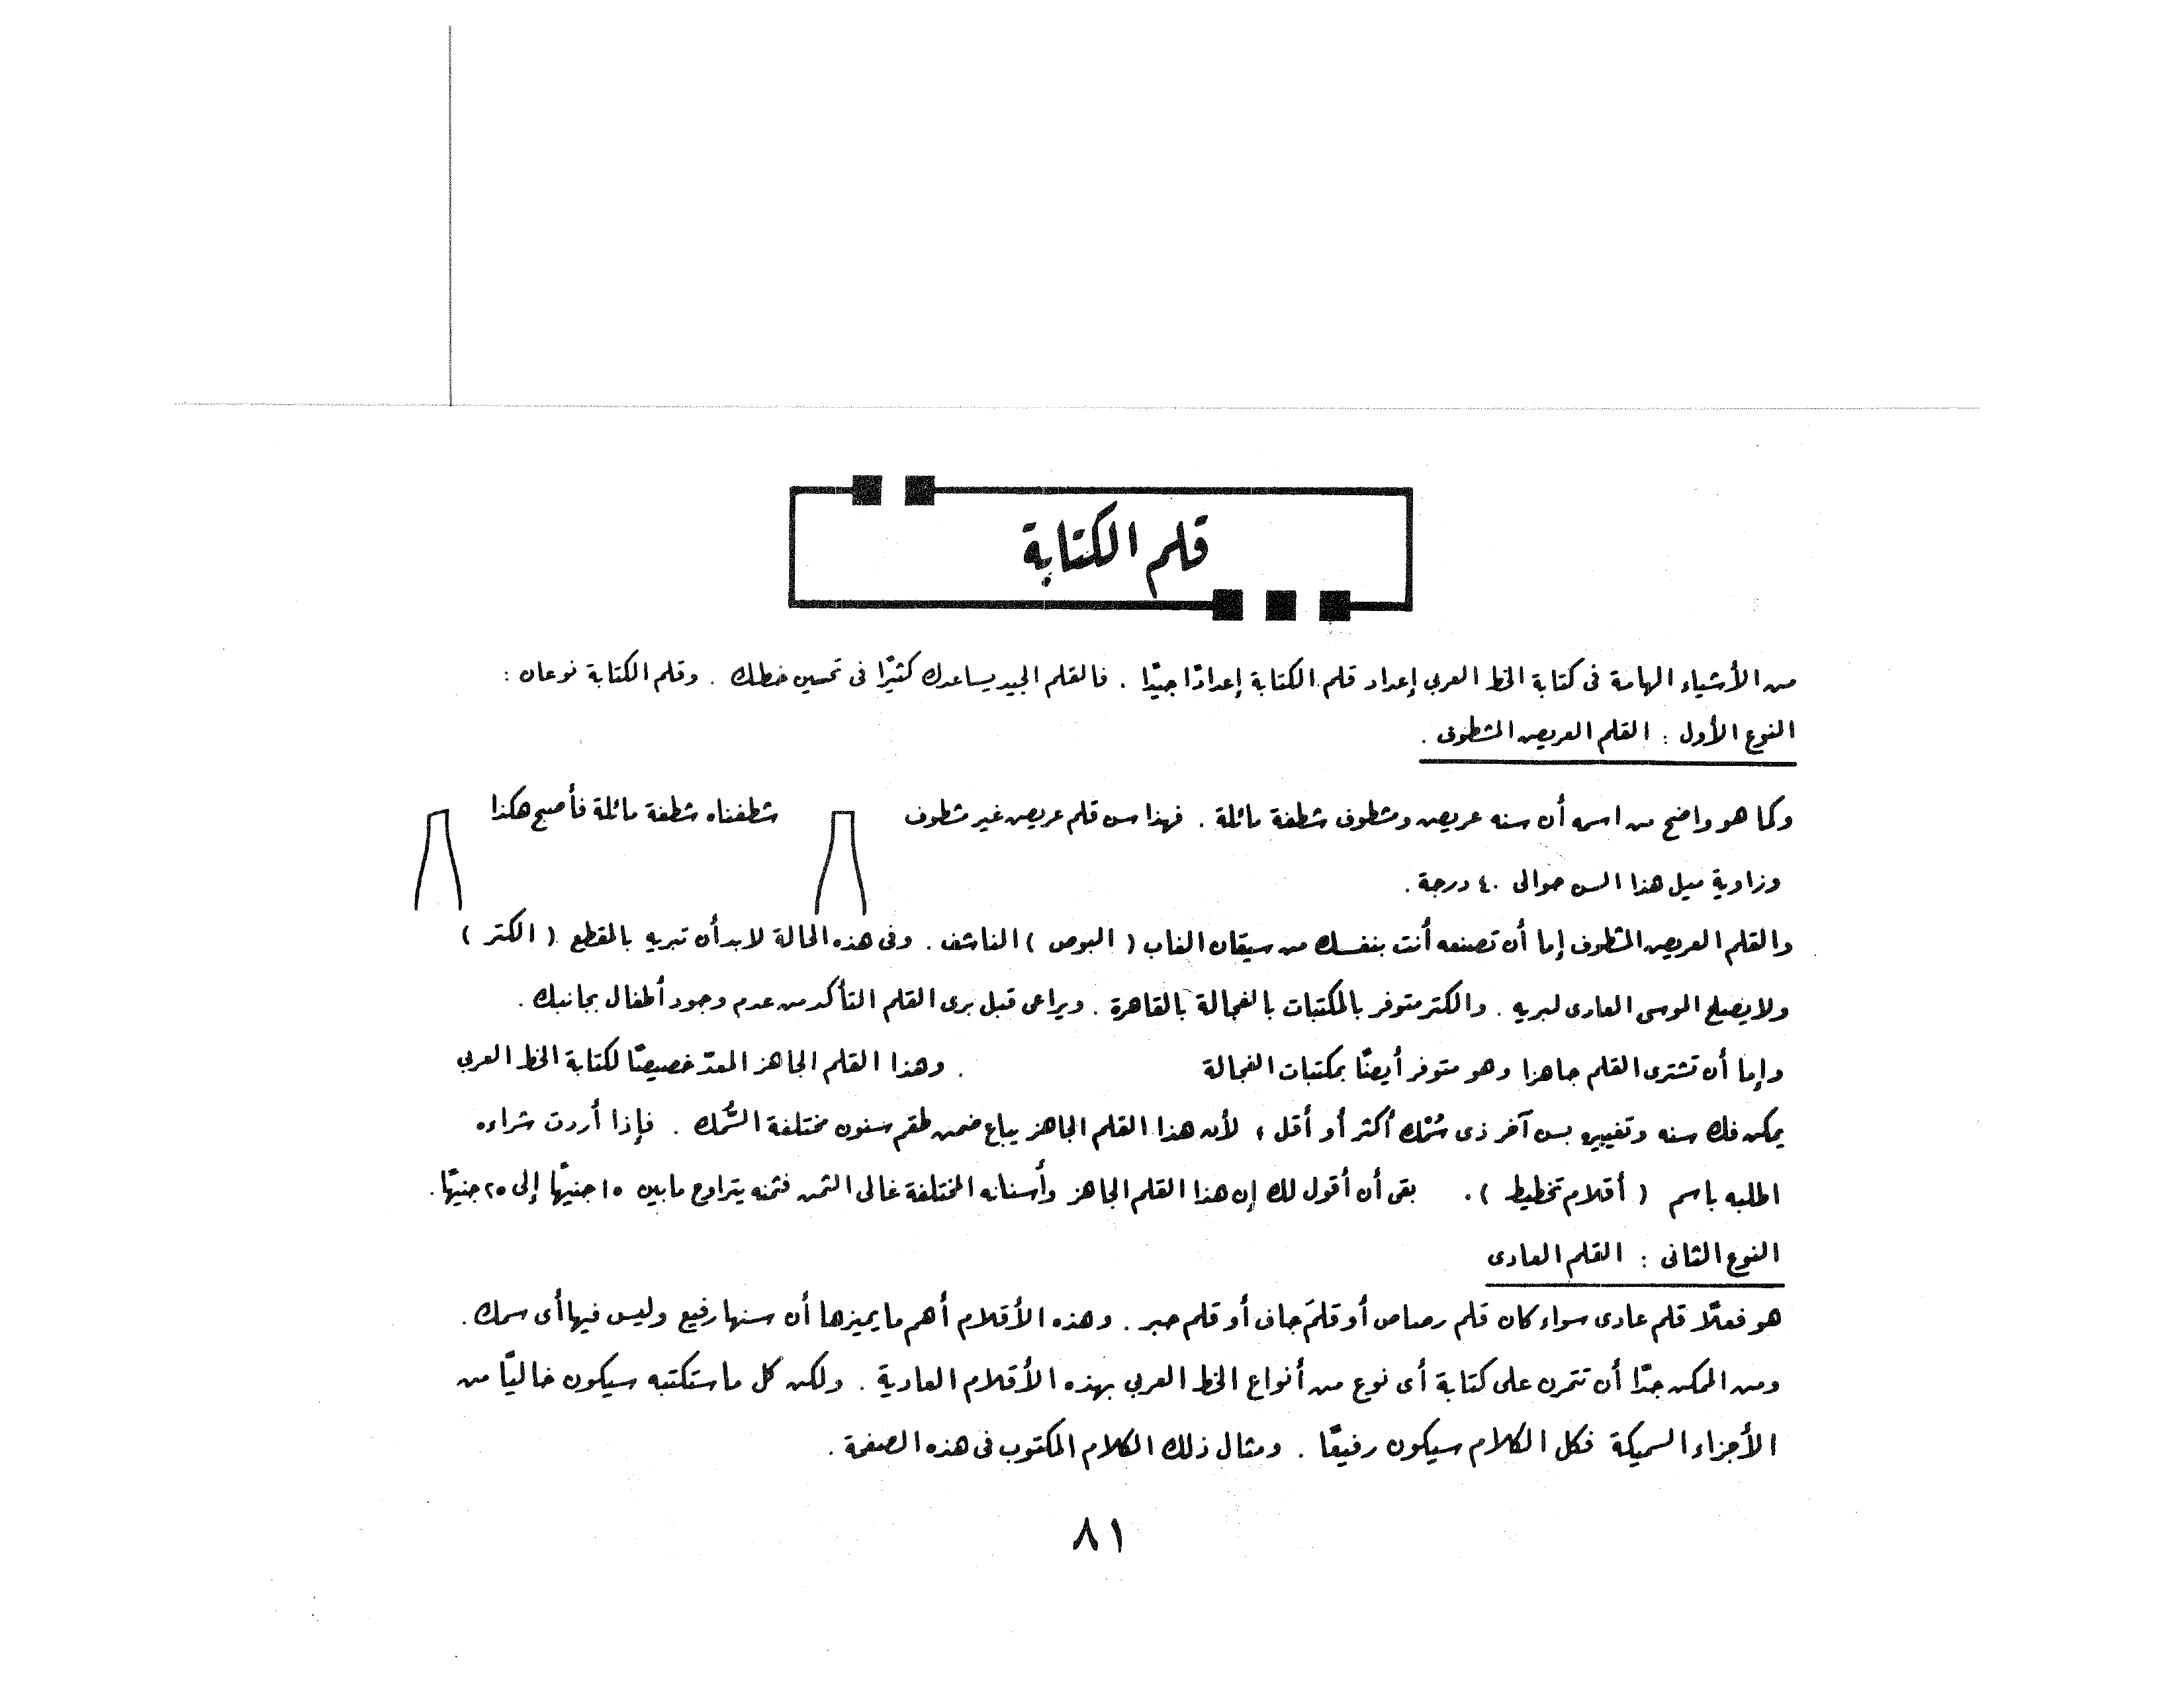 قلم الكتابة
من الأشياء الهامة فى كتابة الخط العربى إعداد قلم الكتابة إعدادًا جيدًا . فالقلم الجيد يساعدك كثيرًا فى تحسين خطك . وقلم الكتابة نوعان :
النوع الأول : القلم العريض المشطوف .
وكما هو واضح من اسمه أن سنه عريض ومشطوف شطفة مائلة . فهذا سن قلم عريض غير مشطوف شطفناه شطفة مائلة فأصبح هكذا
وزاوية ميل هذا السن حوالى ٤٠ درجة .
والقلم العريض المشطوف إما أن تصنعه أنت بنفسك من سيقان الغاب ( البوص ) الناشف . وفى هذه الحالة لابد أن تبريه بالمقطع ( الكتر )
ولا يصلح الموسى العادى لبريه . والكتر متوفر بالمكتبات بالفجالة بالقاهرة . ويراعى قبل برى القلم التأكد من عدم وجود أطفال بجانبك .
وإما أن تشترى القلم جاهزا وهو متوفر أيضًا بمكتبات الفجالة . وهذا القلم الجاهز المعدّ خصيصًا لكتابة الخط العربى
يمكن فك سنه وتغييره بسن آخر ذى سُمْك أكثر أو أقل ؛ لأن هذا القلم الجاهز يباع ضمن طقم سنون مختلفة السُّمك . فإذا أردت شراءه
اطلبه باسم ( أقلام تخطيط ) . بقى أن أقول لك إن هذا القلم الجاهز وأسنانه المختلفة غالى الثمن فثمنه يتراوح ما بين ١٥ جنيهًا إلى ٢٥ جنيهًا .
النوع الثانى : القلم العادى
هو فعلًا قلم عادى سواء كان قلم رصاص أو قلمَ جاف أو قلم حبر . وهذه الأقلام أهم ما يميزها أن سنها رفيع وليس فيها أى سمك .
ومن الممكن جدًا أن تتمرن على كتابة أى نوع من أنواع الخط العربى بهذه الأقلام العادية . ولكن كل ما ستكتبه سيكون خاليًا من
الأجزاء السميكة فكل الكلام سيكون رفيعًا . ومثال ذلك الكلام المكتوب فى هذه الصفحة .
٨١